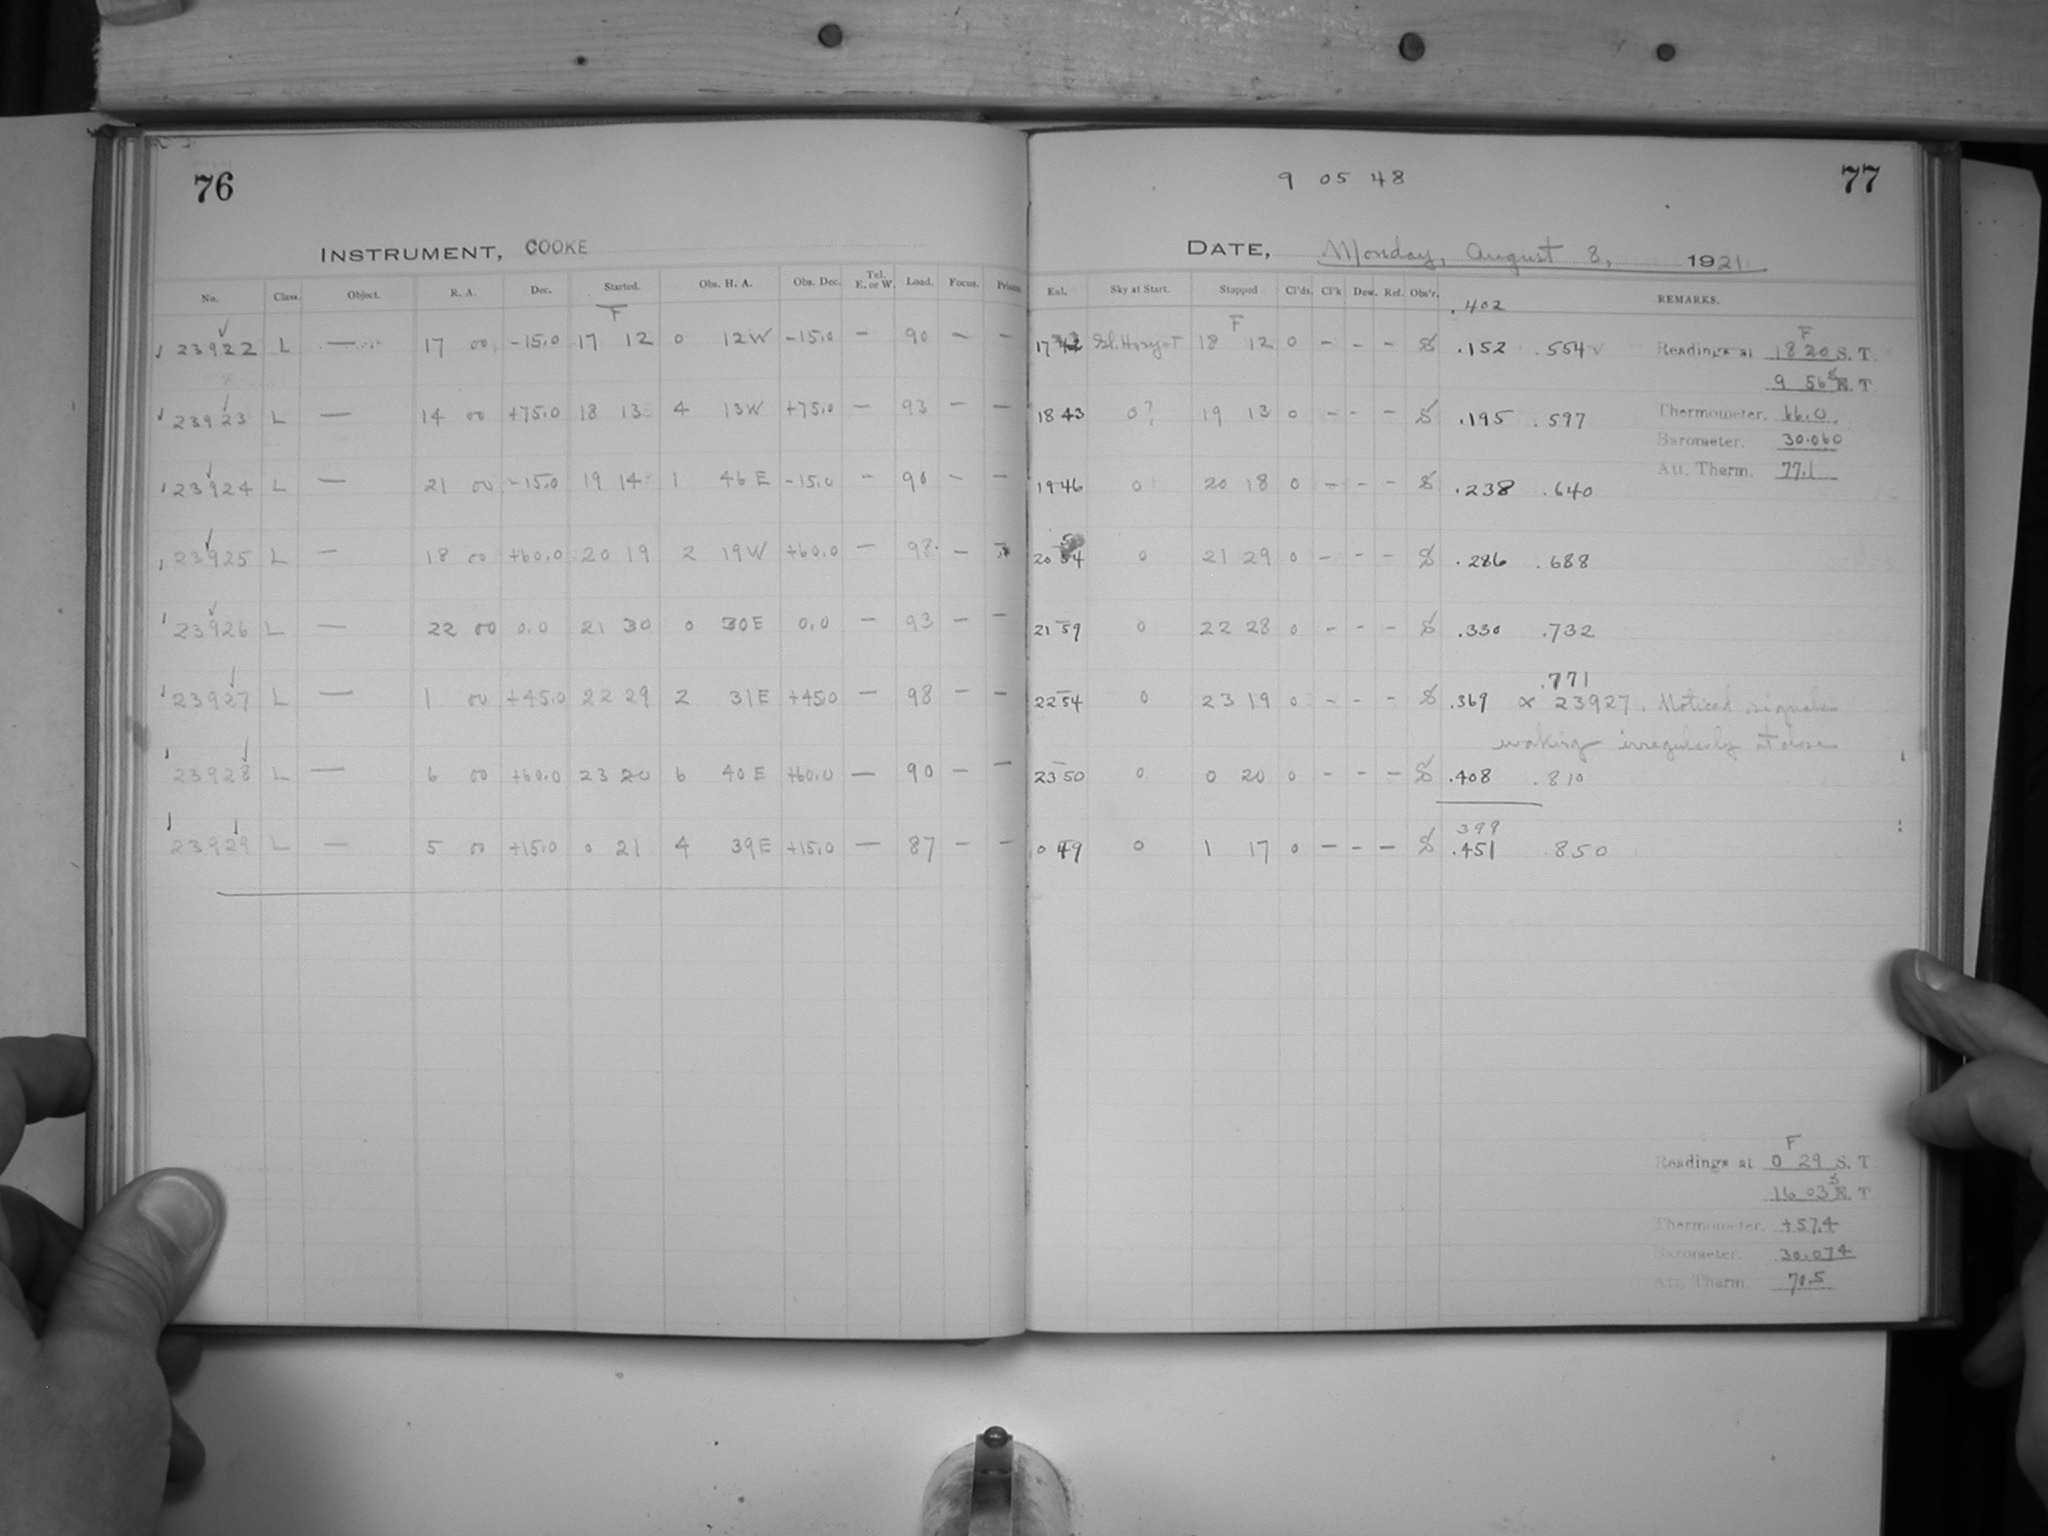 76
INSTRUMENT, COOKE
No. Class. Object. R. A. Dec. Started. Obs. H. A. Obs. Dec. Tel. E. or W. Load. Focus. Prism
F
23922 L — 17 00 -15.0 17 12 0 12W -15.0 — 90 — —
23923 L — 14 00 +75.0 18 13 4 13W +75.0 — 93 — —
23924 L — 21 00 -15.0 19 14 1 46E -15.0 — 90 — —
23925 L — 18 00 +60.0 20 19 2 19W +60.0 — 98 —
23926 L — 22 00 0.0 21 30 0 30E 0.0 — 93 — —
23927 L — 1 00 +45.0 22 29 2 31E +45.0 — 98 — —
23928 L — 6 00 +60.0 23 20 6 40E +60.0 — 90 — —
23929 L — 5 00 +15.0 0 21 4 39E +15.0 — 87 — —
9 05 48
77
DATE, Monday, August 8, 1921
Exl. Sky at Start. Stopped Cl'ds. Cl'k Dew. Ref. Obs'r. REMARKS.
.402
F
17 42 18 12 0 - - - S .152 .554
18 43 0? 19 13 0 - - - S .195 .597
19 46 0 20 18 0 - - - S .238 .640
20 54 0 21 29 0 - - - S .286 .688
21 59 0 22 28 0 - - - S .330 .732
.771
22 54 0 23 19 0 - - - S .369 x 23927. Noticed signals
working irregularly at close
23 50 0 0 20 0 - - - S .408 .810
399
0 49 0 1 17 0 - - - S .451 .850
F
Readings at 18 20 S. T.
9 56 E. T
Thermometer. 66.0
Barometer. 30.060
Att. Therm. 77.1
F
Readings at 0 29 S. T
16 03 E. T
Thermometer. +57.4
Barometer. 30.074
Att. Therm. 70.5